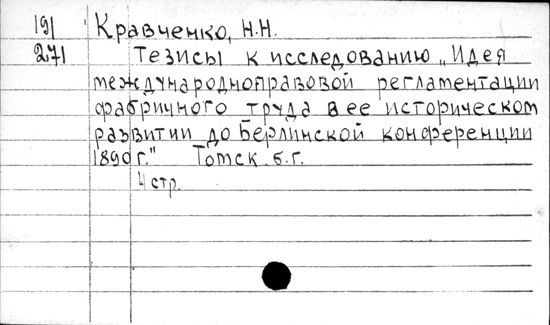 191 Кравченко, Н.Н.
271 Тезисы к исследованию „Идея
международноправовой регламентации
фабричного труда в ее историческом
развитии до Берлинской конференции
1890 г." Томск б.г.
4 стр.